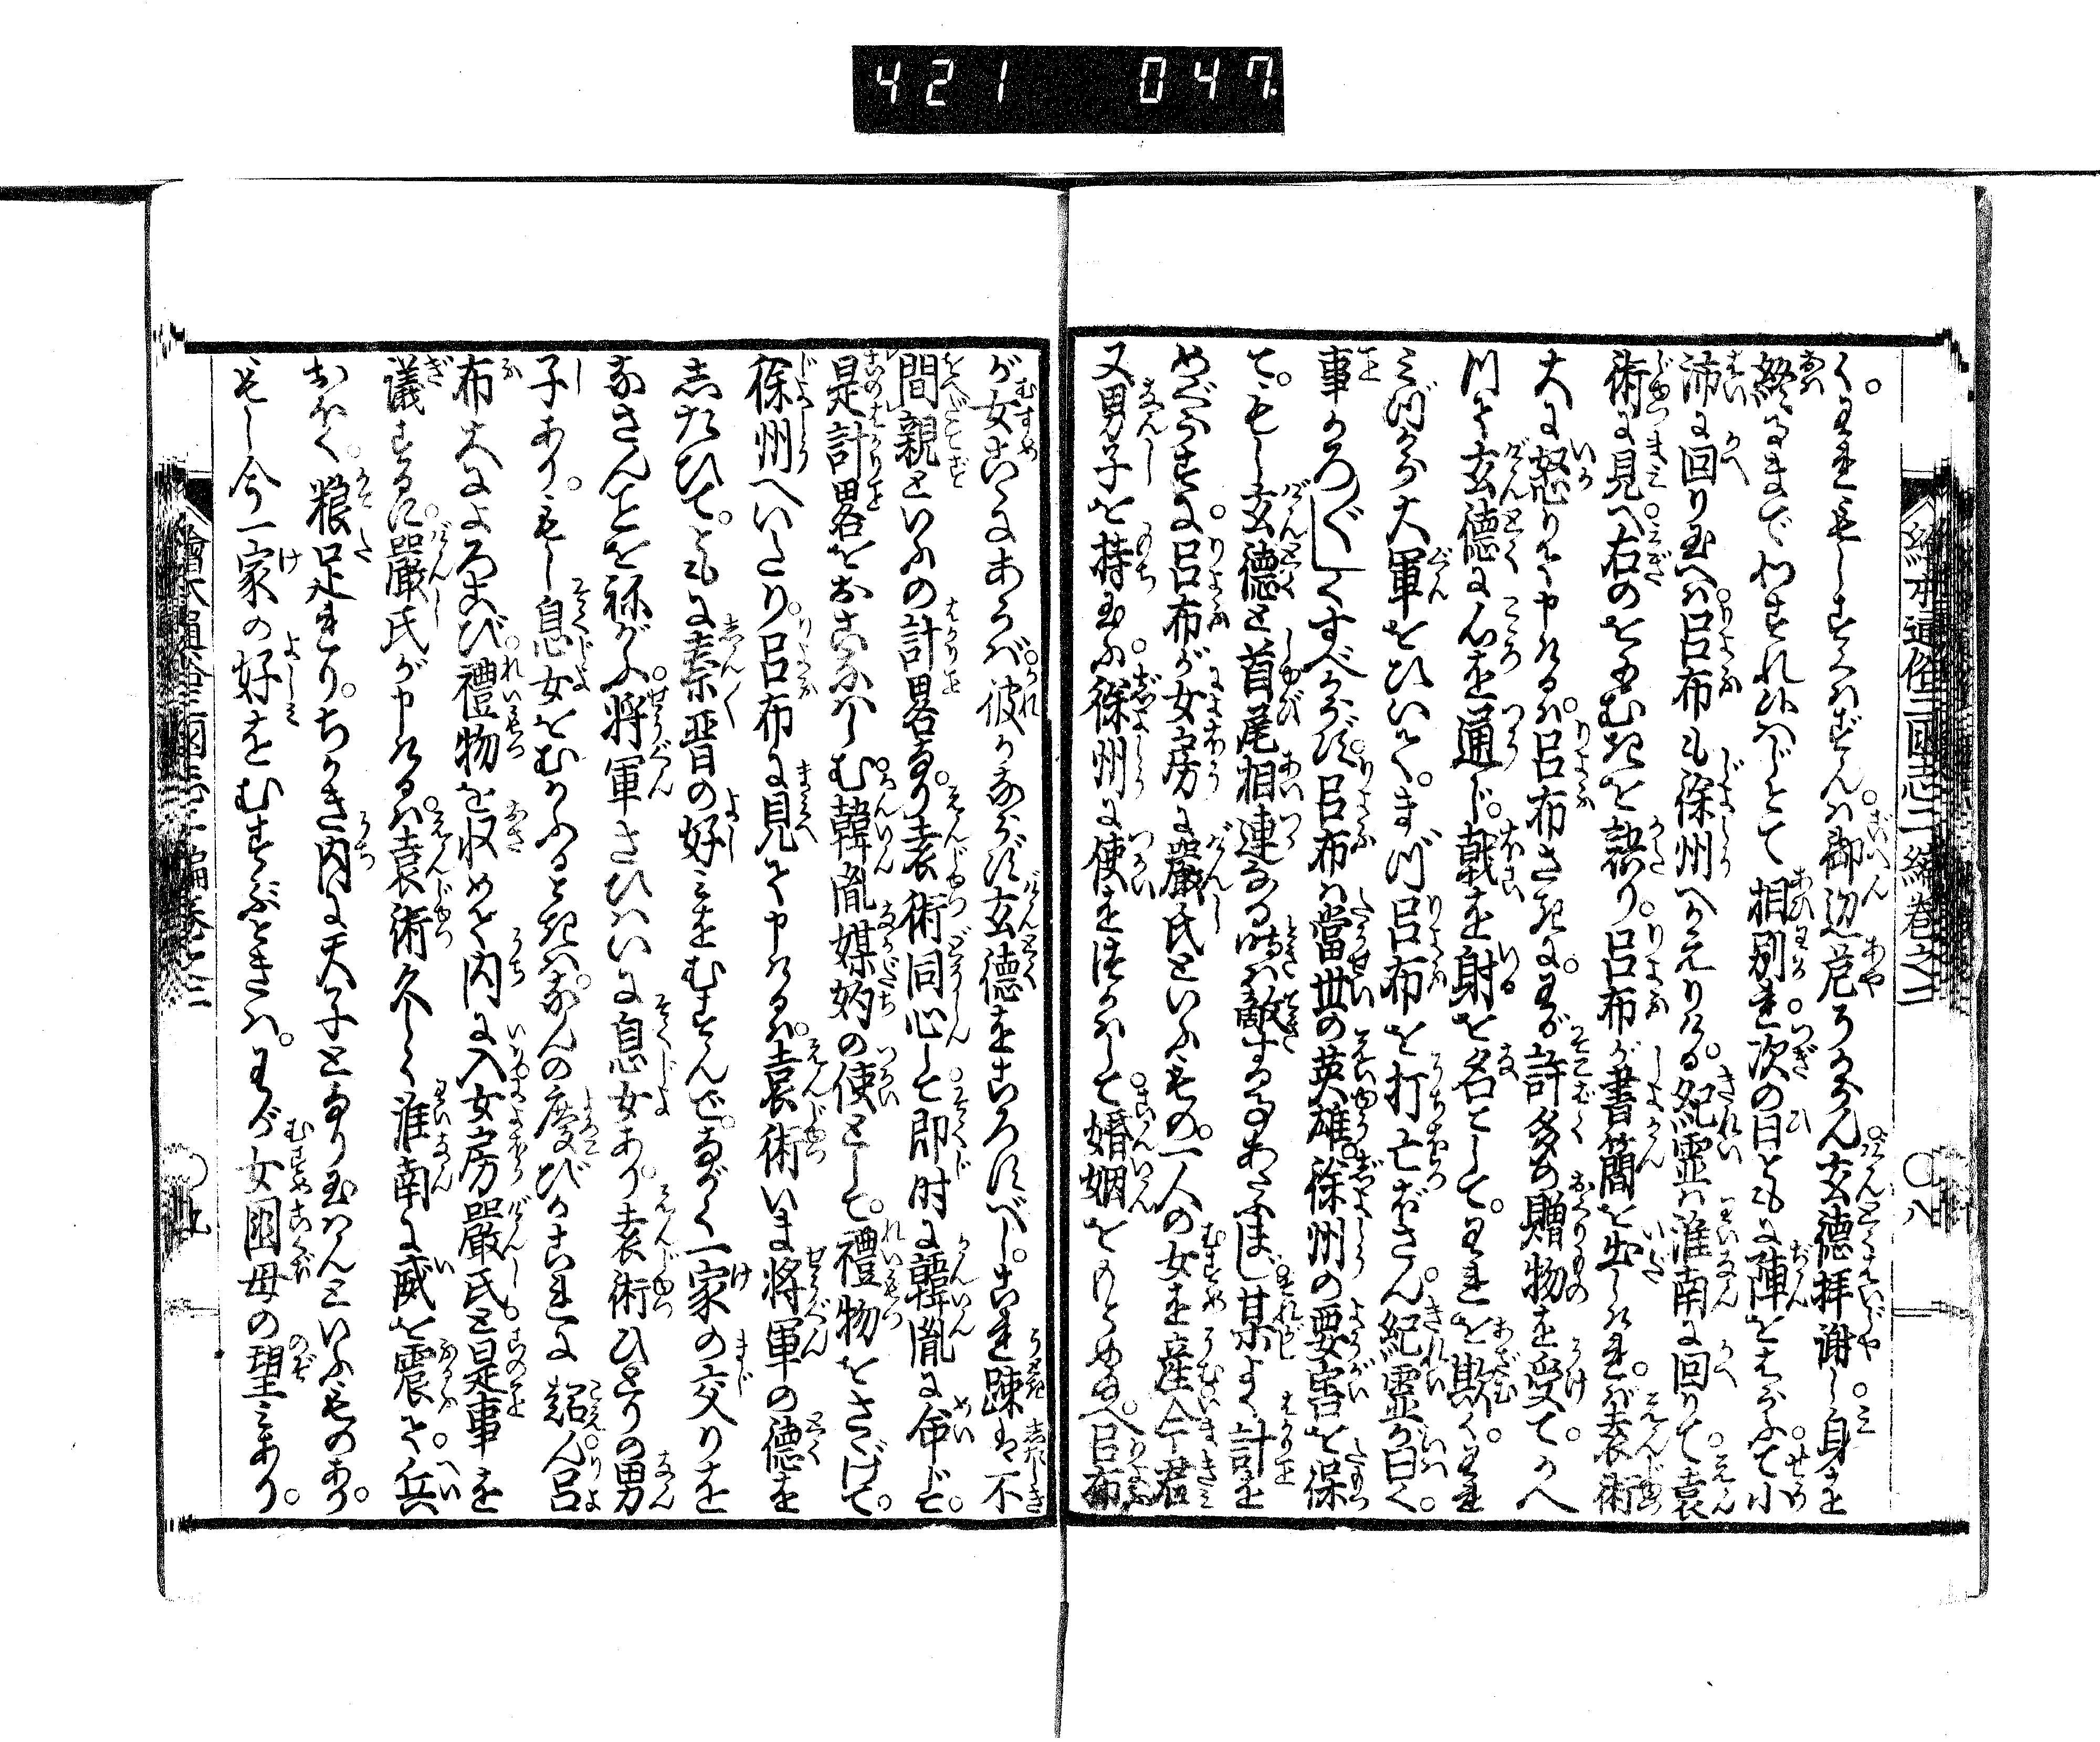 421 047
繪本通俗三國志二編卷之二
〇八
く。われもしすくはずんば御辺危うからん。玄德拝謝し。身を
終るまでわすれ候はじとて相別れ。次の日ともに陣をはらふて。小
沛に回り玉へば。呂布も徐州へかへりける。紀霊は淮南に回りて。袁
術に見へ。右のをもむきを語り。呂布が書簡を出しければ。袁術
大に怒りて申けるは。呂布さきに。わが許多の贈物を受て。かへ
つて玄德に心を通じ。戟を射るを名として。われを欺く。われ
みづから大軍をひいて。まづ呂布を打亡ぼさん。紀霊が曰く。
事かろ〲しくすべからず。呂布は當世の英雄。徐州の要害を保
て。もし玄德と首尾相連なる時は敵することあたふまじ。某よく計を
めぐらすに。呂布が女房に嚴氏といふもの。一人の女を産。今君
又男子を持玉ふ。徐州に使をつかはして。婚姻をもとめ玉へ。呂布
が女こゝにあらば。彼かならず玄德をころすべし。これ踈は不
間親といふの計畧なり。袁術同心して。即时に韓胤に命じて。
是計畧をおこなはしむ。韓胤媒妁の使として。禮物をさゝげて。
徐州へいたり。呂布に見て申けるは。袁術いま将軍の德を
したひて。ともに秦晋の好みをむすんで。ながく一家の交りを
なさんとを祢がふ。将軍さひはいに息女あり。袁術ひとりの男
子あり。もし息女をむかふるときは。なんの慶びかこれに超ん。呂
布大によろこび。禮物を収めて内に入。女房嚴氏と是事を
議するに。嚴氏が申けるは。袁術久しく淮南に威を震て。兵
おほく。粮足れり。ちかき内に天子となり玉はんといふものあり。
もし今一家の好をむすぶときは。わが女國母の望みあり。
繪本通俗三國志二編卷之二
〇九